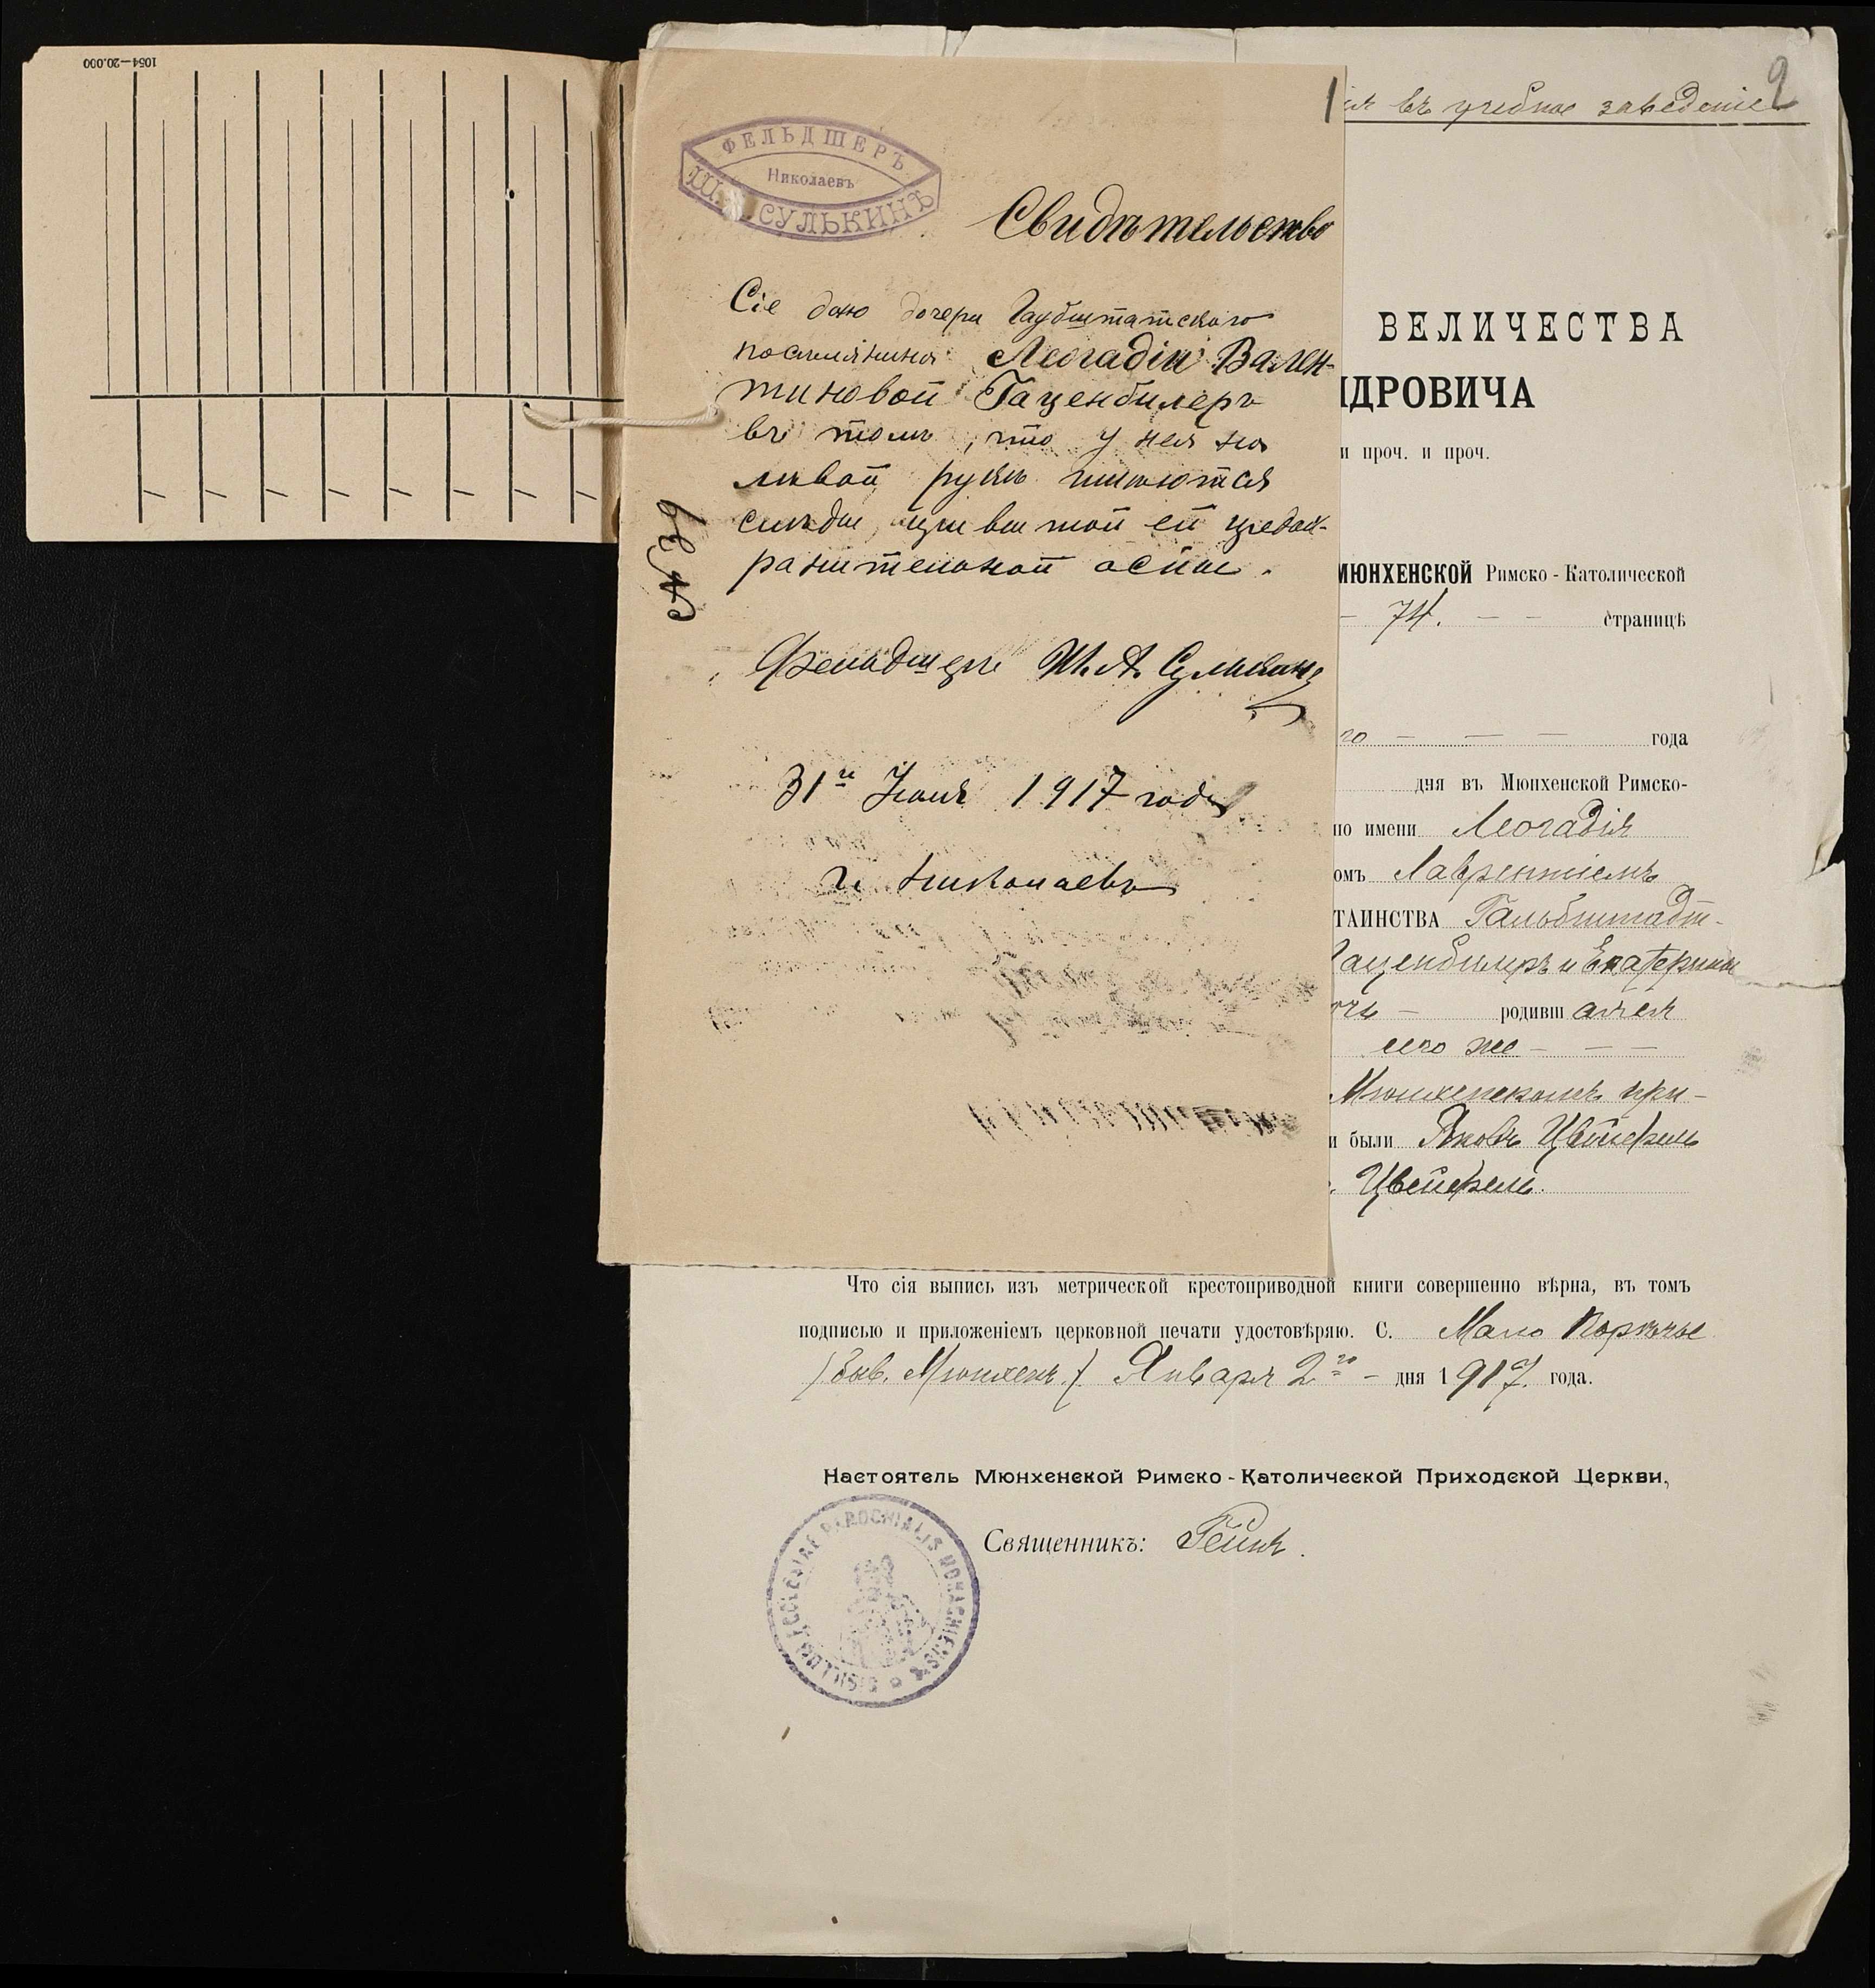 1054—20.000
ФЕЛЬДШЕРЪ
Николаевъ
СУЛЬКИНЪ
Свидѣтельство
Сіе даю дочери Гаубштатскаго
поселянина Леогадіи Вален-
тиновой Гаценбилеръ
въ томъ, что у нея на
лѣвой рукѣ имѣются
слѣды привитой ей предох-
ранительной оспы.
Фельдшеръ Ш. А. Сулькинъ
31го 1917 года
г. Николаевъ
1
2
въ учебное заведеніе
ВЕЛИЧЕСТВА
НДРОВИЧА
и проч. и проч.
МЮНХЕНСКОЙ Римско-Католической
— 74. — — страницѣ
го — — — года
дня въ Мюнхенской Римско-
по имени Леогадія
омъ Лаврентіемъ
ТАИНСТВА Гальбштадт-
Гаценбилеръ и Екатерины
очь — родившаяся
сего же — — —
Мюнхенскомъ при-
и были Яковъ Цвейфель
Цвейфель.
Что сія выпись изъ метрической крестоприводной книги совершенно вѣрна, въ томъ
подписью и приложеніемъ церковной печати удостовѣряю. С. Мало Порѣчье
/быв. Мюнхенъ./ Января 2го — дня 1917. года.
Настоятель Мюнхенской Римско-Католической Приходской Церкви,
Священникъ:
SIGILLUM ECCLESIAE PAROCHIALIS MONACHIENSIS